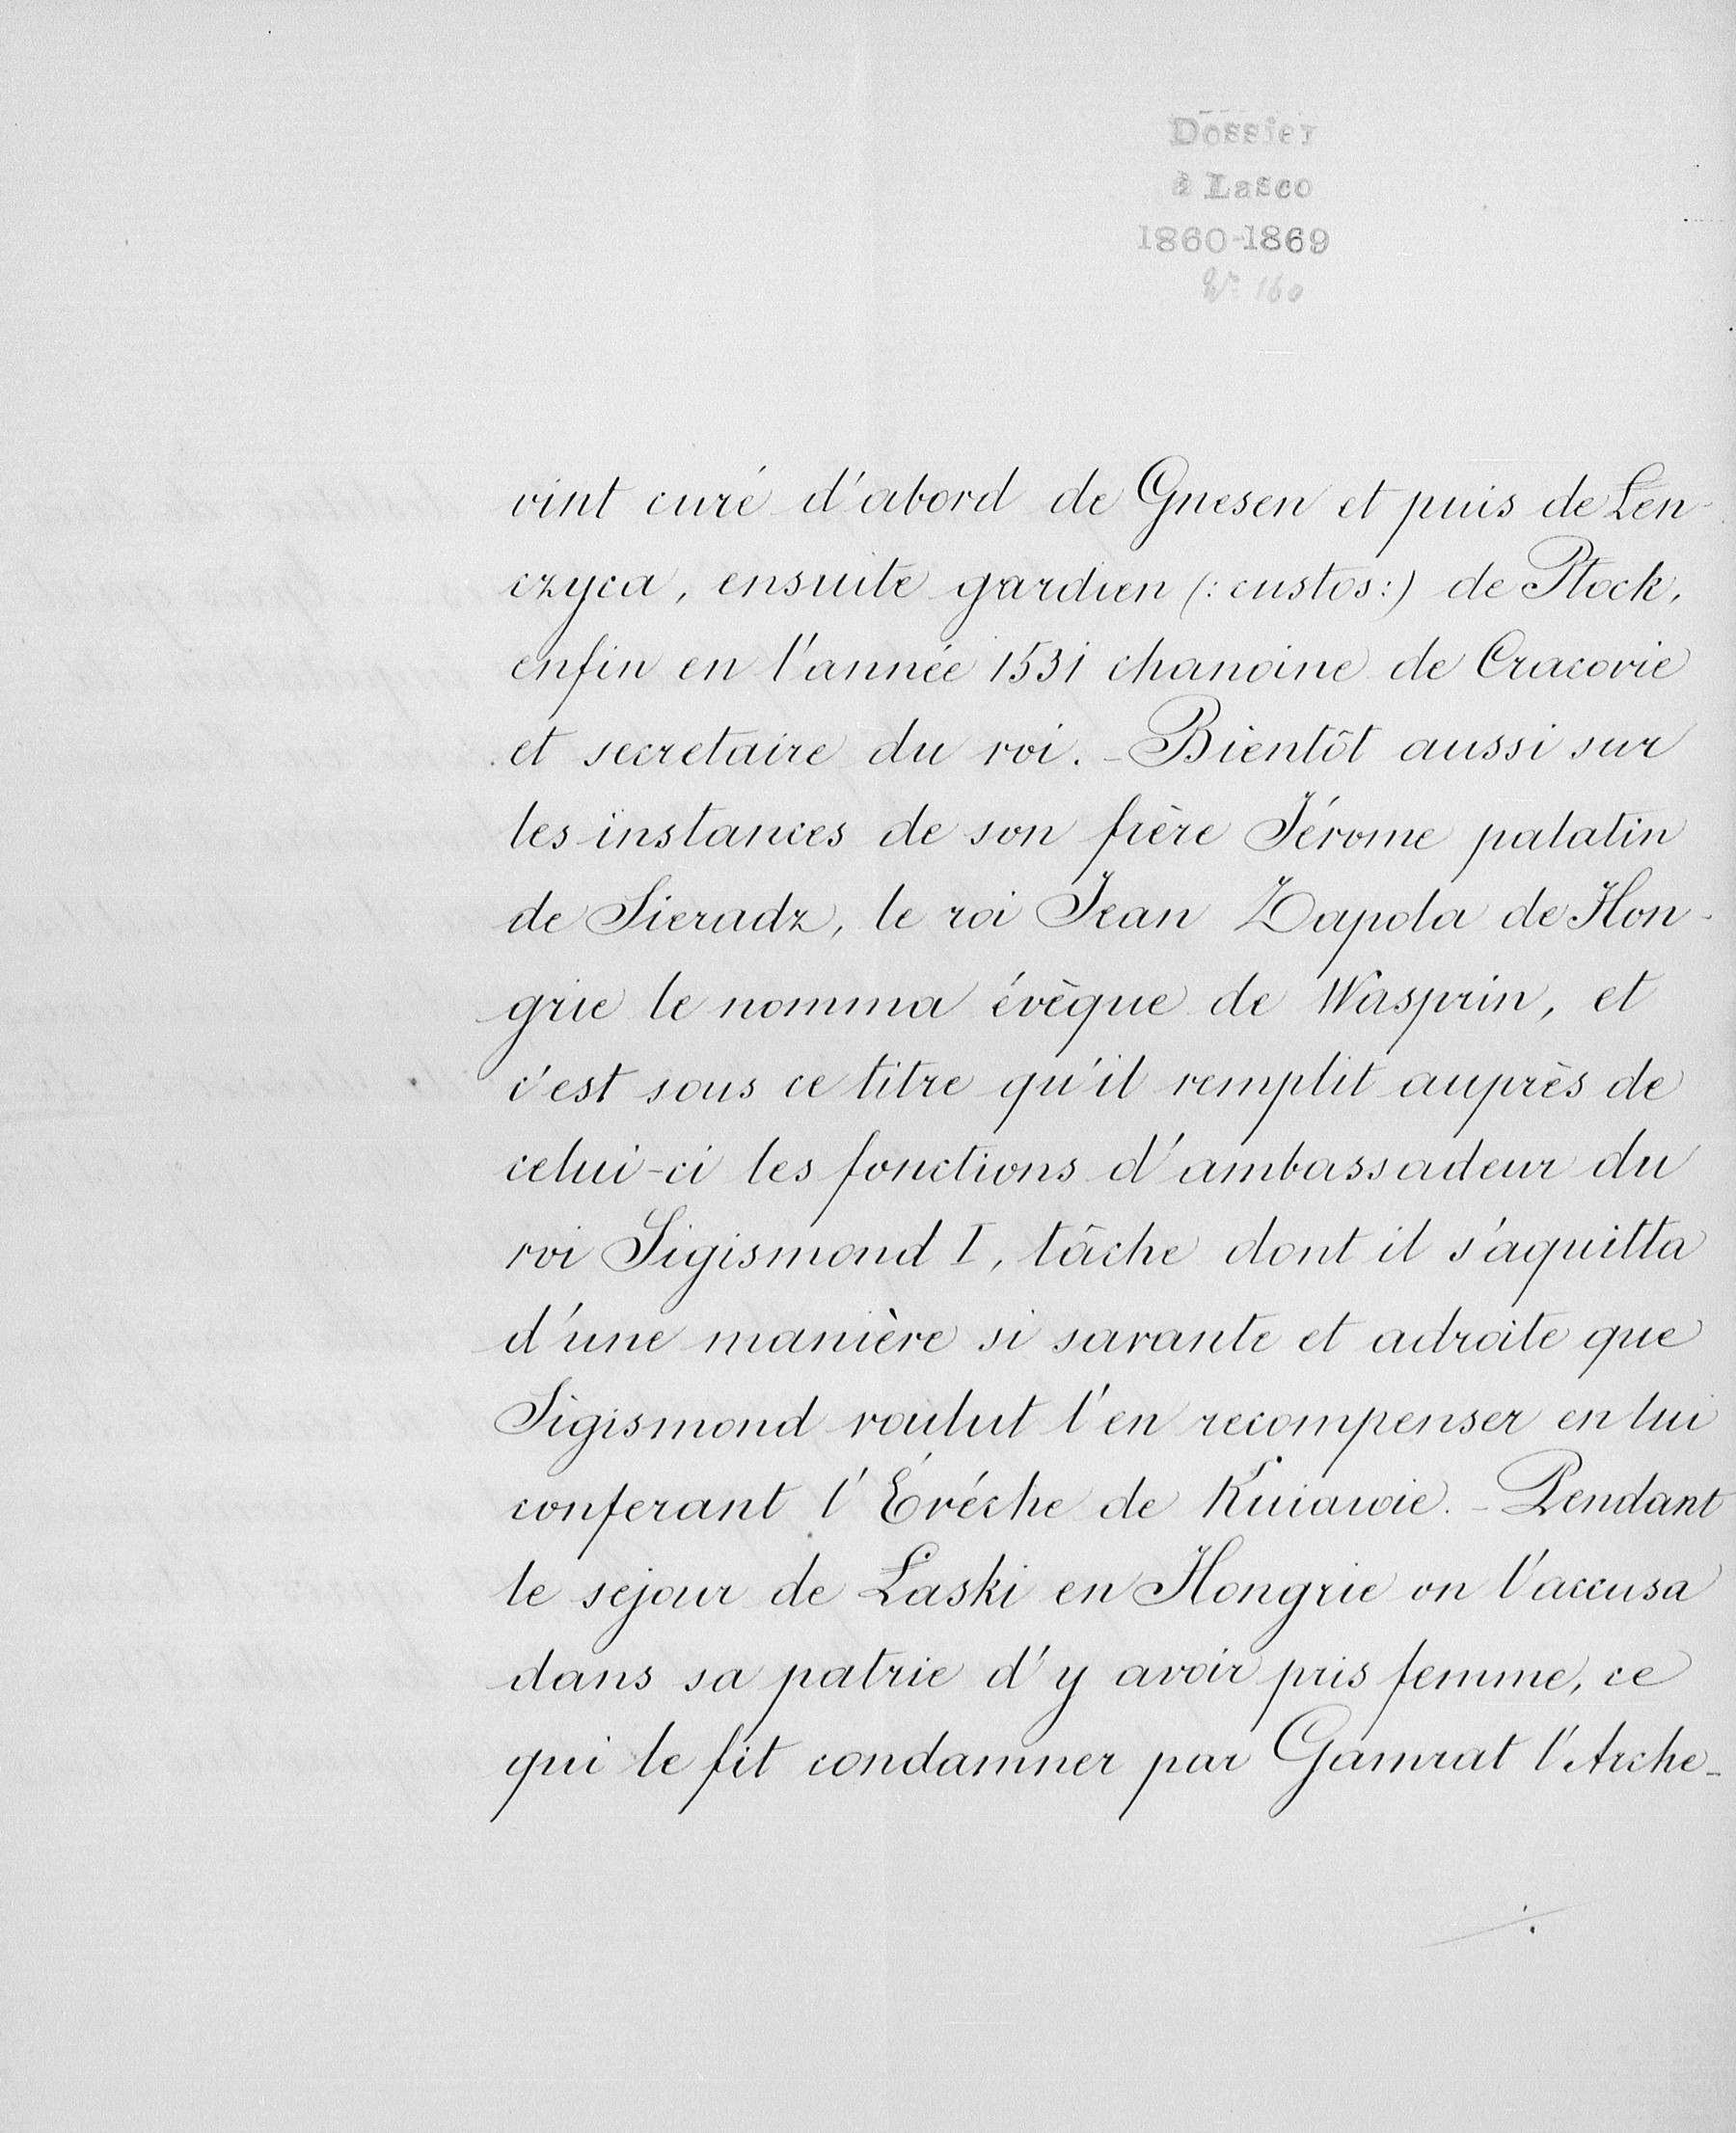 Dossier
à Lasco
1860-1869
N° 160
vint curé d'abord de Gnesen et puis de Len-
czyca, ensuite gardien (: custos:) de Plock,
enfin en l'année 1531 chanoine de Cracovie
et secretaire du roi. - Bientôt aussi sur
les instances de son frère Jérome palatin
de Sieradz, le roi Jean Zapola de Hon-
grie le nomma évèque de Wasprin, et
c'est sous ce titre qu'il remplit auprès de
celui-ci les fonctions d'ambassadeur du
roi Sigismond I, tâche dont il s'aquitta
d'une manière si savante et adroite que
Sigismond voulut l'en recompenser en lui
conferant l'Évéche de Kuiawie. - Pendant
le sejour de Laski en Hongrie on l'accusa
dans sa patrie d'y avoir pris femme, ce
qui le fit condamner par Gamrat l'Arche-